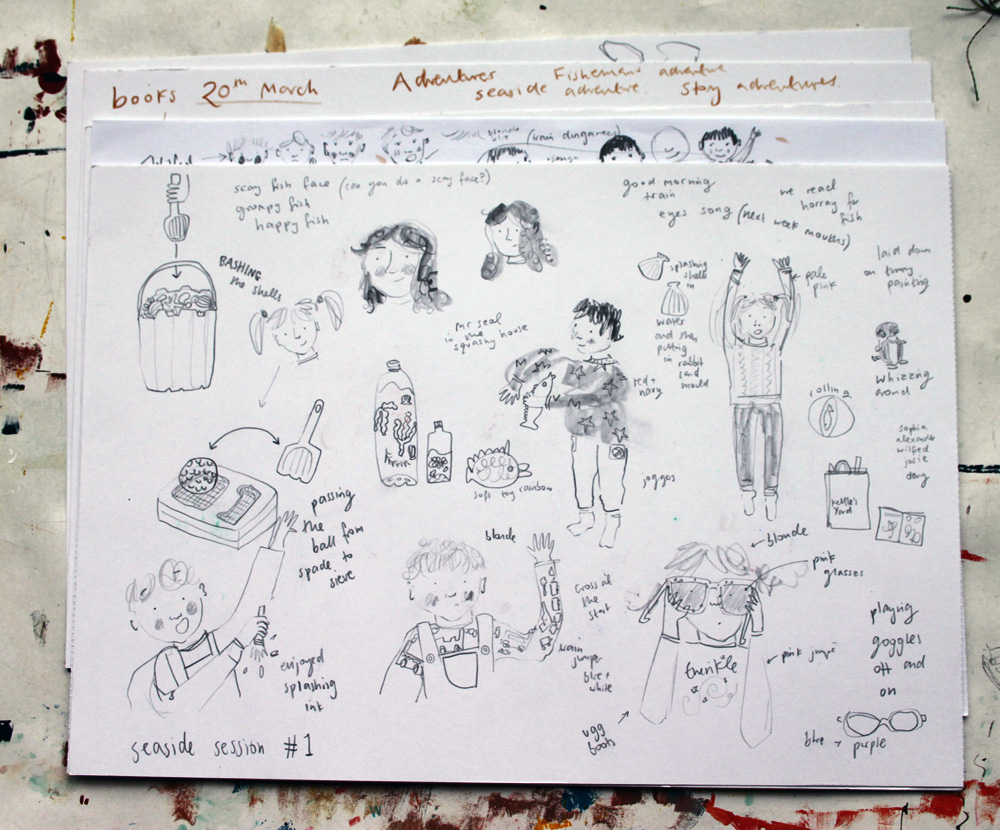 books 20th March
Adventures
Fisherman adventure
seaside adventure.
Stay adventures.
al blonde
(train dungarees)
scay fish face (can you do a scay face?)
grumpy fish
happy fish
good morning
train
eyes song (next week mouths)
we read
horray for
fish
BASHING
the shells
splashing
shells
in
water
and then
putting
in rabbit
sand
mould
pale
pink
laid down
on
painting
Mr seal
in the
squashy house
red +
navy
whizzing
around
rolling
sophia
alexander
wilfred
josie
soft toy rainbow
joggers
kettle's
Yard
passing
the
ball from
spade to
sieve
blonde
blonde
pink
glasses
cross at
the
start
train
jumper
blue +
white
enjoyed
splashing
ink
twinkle
pink jumper
playing
goggles
off and
on
ugg
boots
blue → purple
seaside session #1